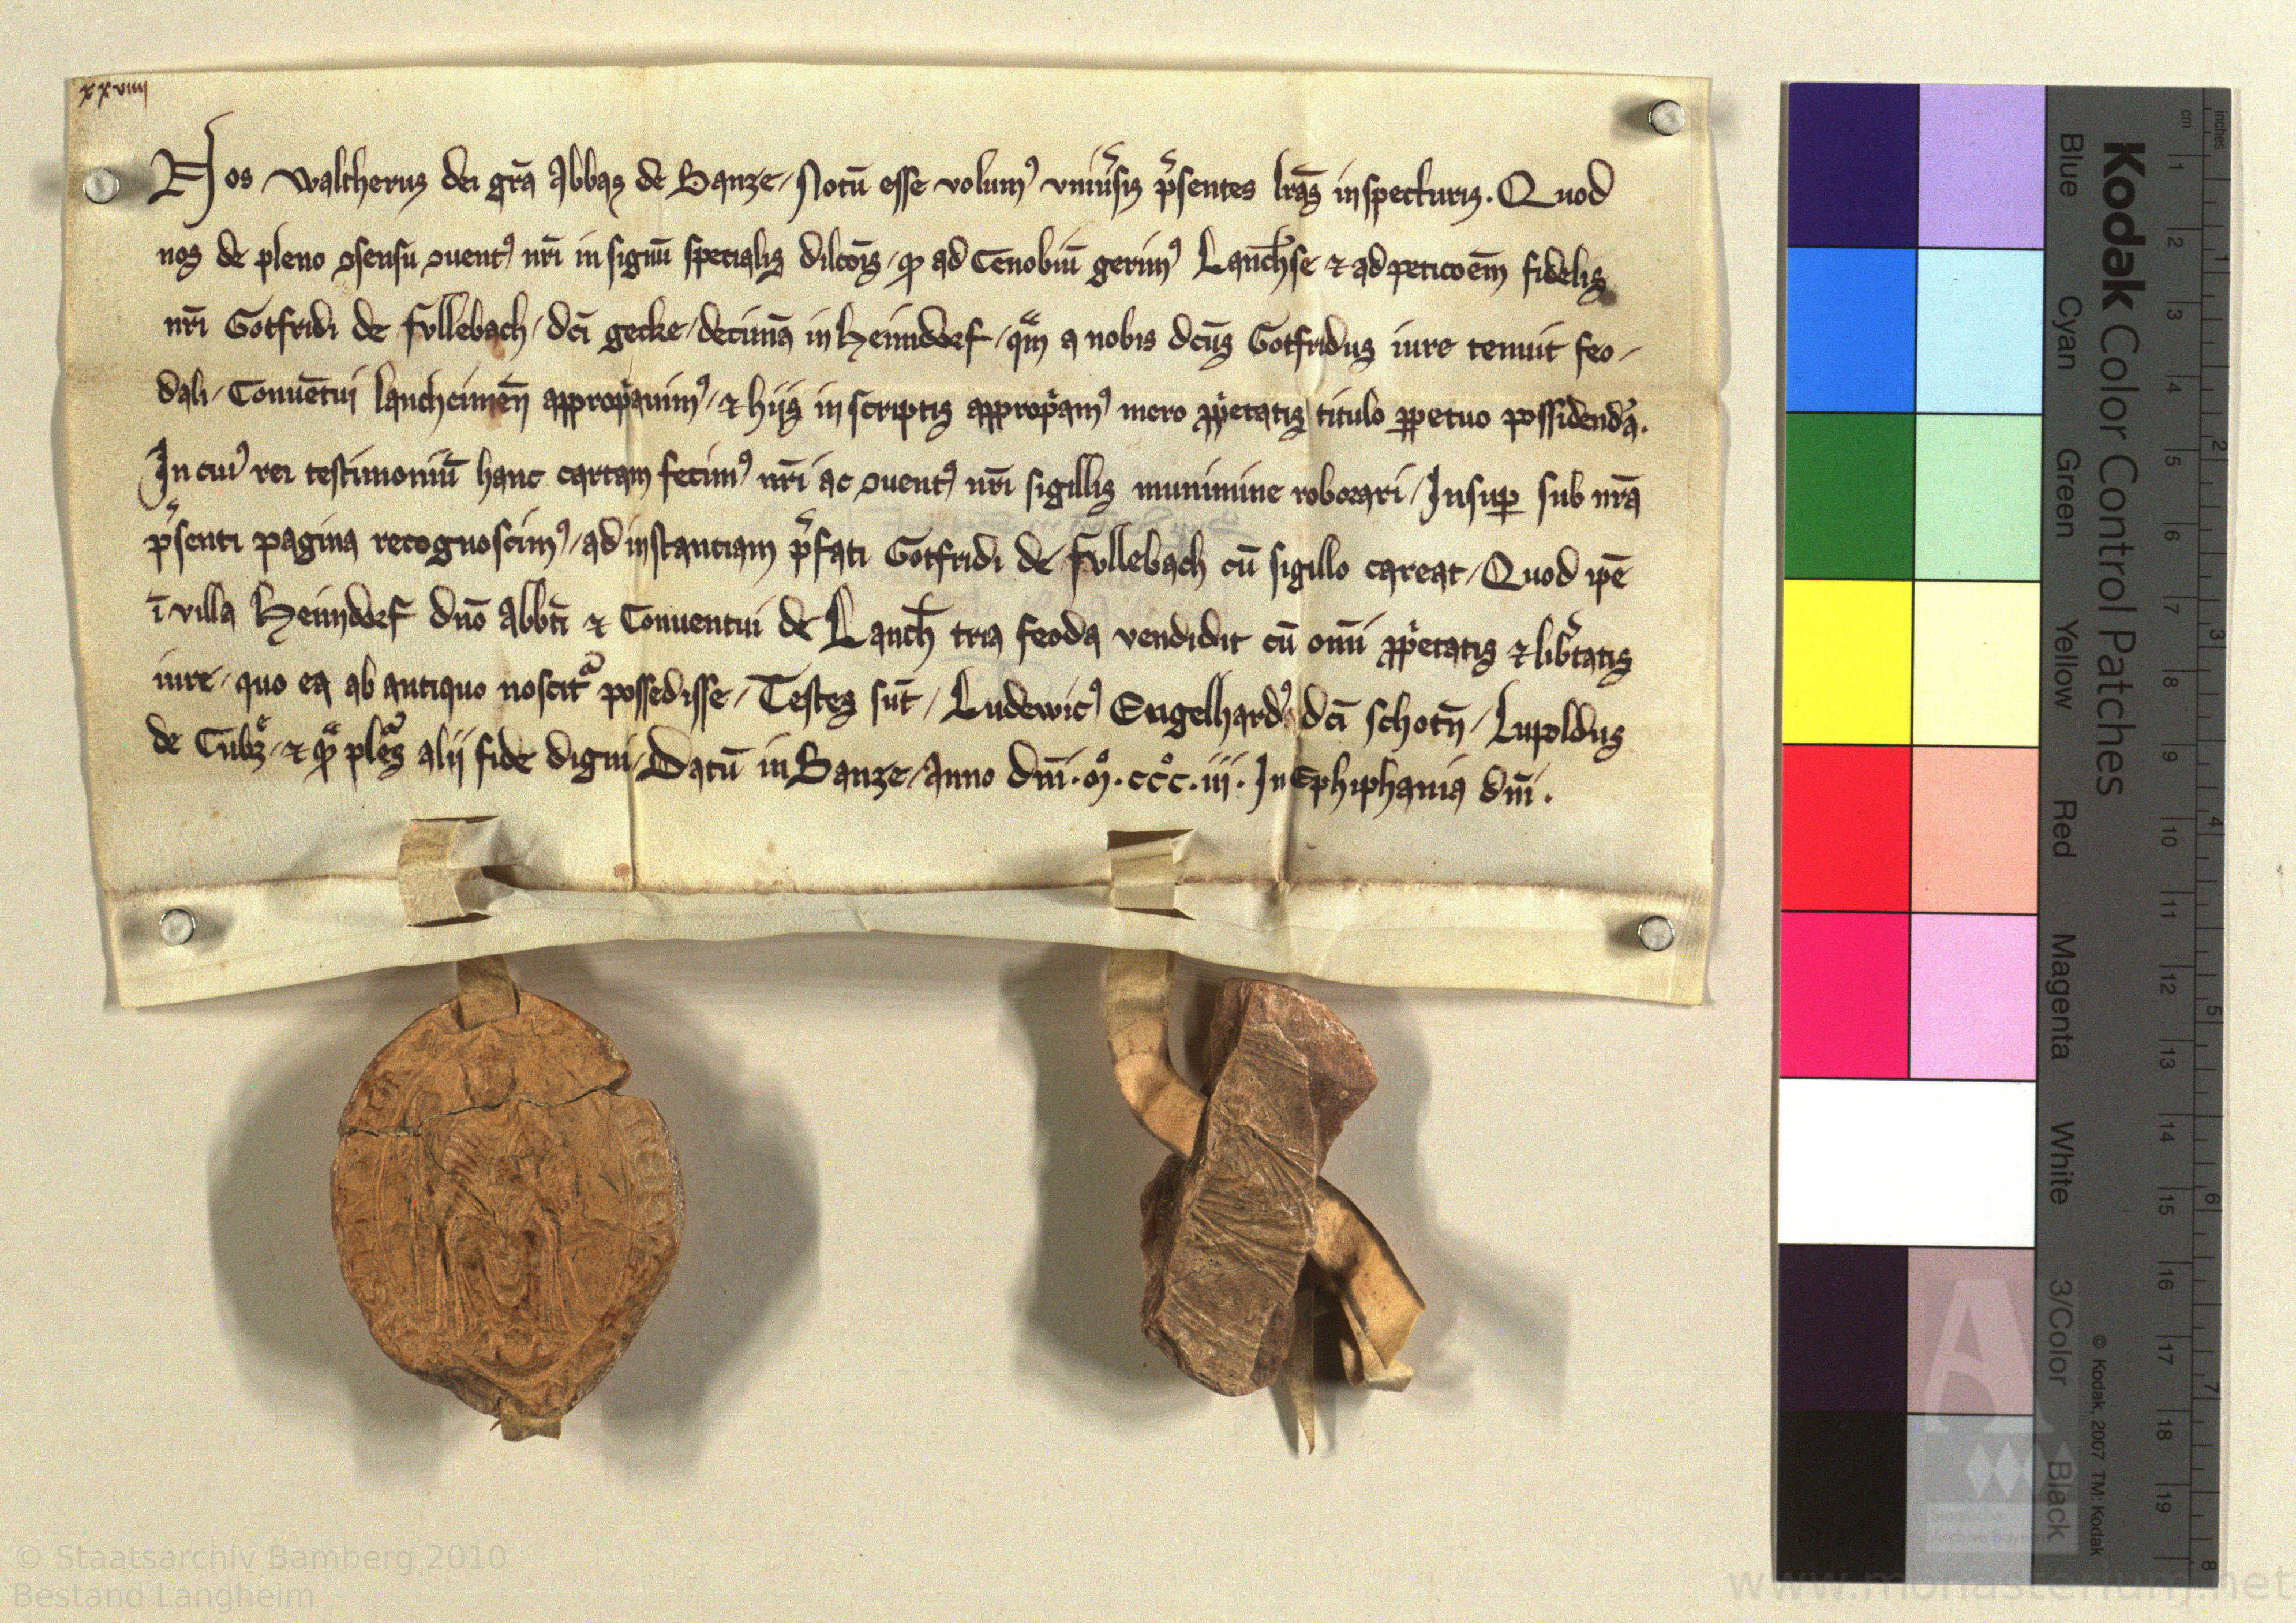 xxviiij
Nos Waltherus dei gr̄a Abbas de Banze / Notū esse volumꝰ vniu̓sis p̓sentes lr̄as inspecturis. Quod
nos de pleno ꝯsensu ꝯuentꝰ nr̄i in signū specialis dilcōis / ꝙ ad Cenobiū gerimꝰ Lanch̄se ⁊ ad peticoēm fidelis
nr̄i Gotfridi de fvllebach / dc̄i gecke / decimā in Heimdorf / qͣm a nobis dc̄us Gotfridus iure tenuit feo-
dali / Conuētui lancheimēn̄ appropͥauimꝰ / ⁊ hijs in scriptis appropͥamꝰ mero ꝓpͥetatis titulo ꝑpetuo possidendā.
In cuiꝰ rei testimoniū hanc cartam fecimꝰ nr̄i ac ꝯuentꝰ nr̄i sigillis munimine roborari / Insuꝑ sub nr̄a
p̓senti pagina recognoscimꝰ / ad instantiam p̓fati Gotfridi de fvllebach cū sigillo careat / Quod ip̄e
ī villa Heimdorf dn̄o Abbt̄i ⁊ Conuentui de Lanch̄ tria feoda vendidit cū om̄i ꝓpͥetatis ⁊ lib̓tatis
iure / quo ea ab antiquo noscitᷣ possedisse / Testes sūt / Ludewicꝰ Engelhardꝰ dc̄i schotn̄ / Lupoldus
de Cūbz / ⁊ ꝙ plēs alij fide digni / Datū in Banze / Anno dn̄i. M̊. cc̊c. iii. In Ephiphania dn̄i.
Kodak Color Control Patches
Blue Cyan Green Yellow Red Magenta White 3/Color Black
© Kodak, 2007 TM: Kodak
inches 1 2 3 4 5 6 7 8
cm 1 2 3 4 5 6 7 8 9 10 11 12 13 14 15 16 17 18 19
Staatliche
Archive Bayerns
© Staatsarchiv Bamberg 2010
Bestand Langheim
www.monasterium.net